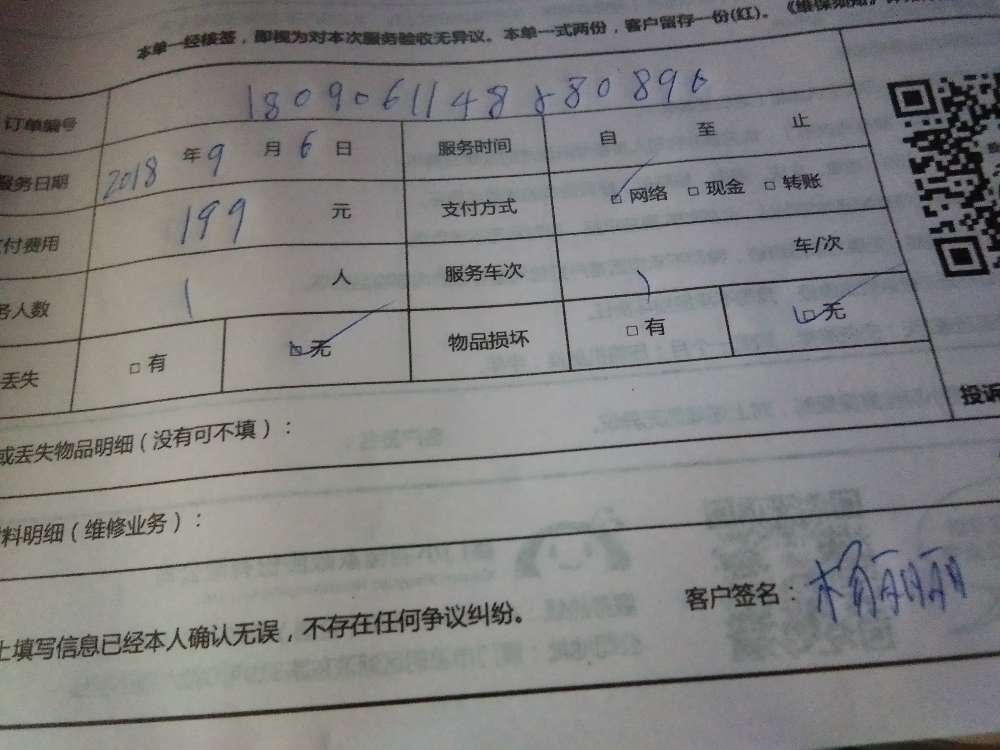 本单一经核签，即视为对本次服务验收无异议。本单一式两份，客户留存一份(红)。《维保须知》
订单编号 180906114888089 6
服务日期 2018 年 9 月 6 日 服务时间 自 至 止
付费用 199 元 支付方式 ☑ 网络 □ 现金 □ 转账
务人数 1 人 服务车次 1 车/次
丢失 □ 有 ☑ 无 物品损坏 □ 有 ☑ 无
投诉
或丢失物品明细（没有可不填）：
料明细（维修业务）：
上填写信息已经本人确认无误，不存在任何争议纠纷。
客户签名：杨丽丽